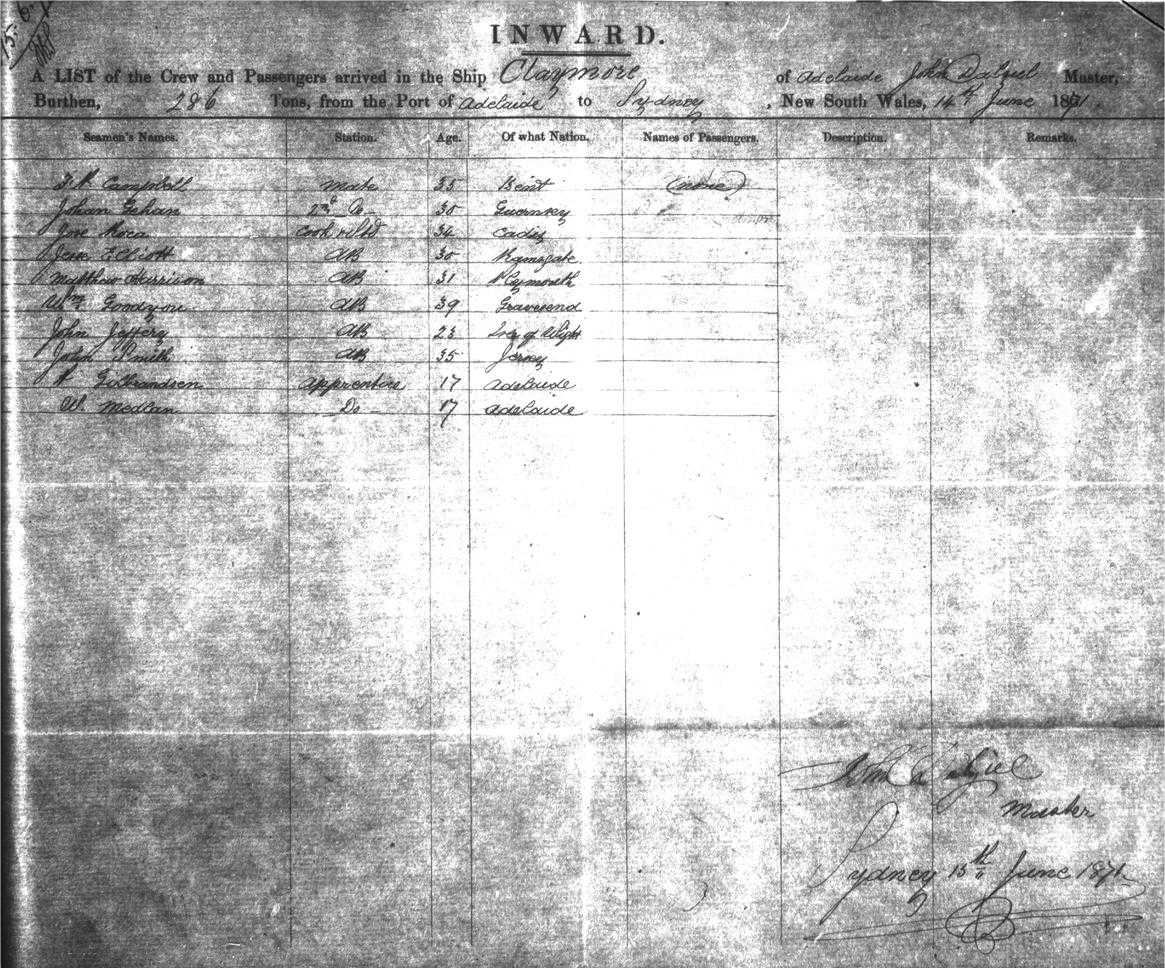 15.6.71
INWARD.
A LIST of the Crew and Passengers arrived in the Ship Claymore of Adelaide John Dalziel Master,
Burthen, 286 Tons, from the Port of Adelaide to Sydney, New South Wales, 14th June 1871.
Seamen's Names. Station. Age. Of what Nation. Names of Passengers. Description. Remarks.
Campbell Mate 35 Kent (none)
Johan Gehan 2nd Do 30 Guernsey
Jose Roca Cook & Std 34 Cadiz
Jesse Elliott AB 30 Ramsgate
Matthew Harrison AB 31 Plymouth
Wm Goodyou AB 39 Gravesend
John Jeffery AB 23 Isle of Wight
John Smith AB 35 Jersey
Apprentice 17 Adelaide
W. Medlan Do 17 Adelaide
John Dalziel
Master
Sydney 15th June 1871